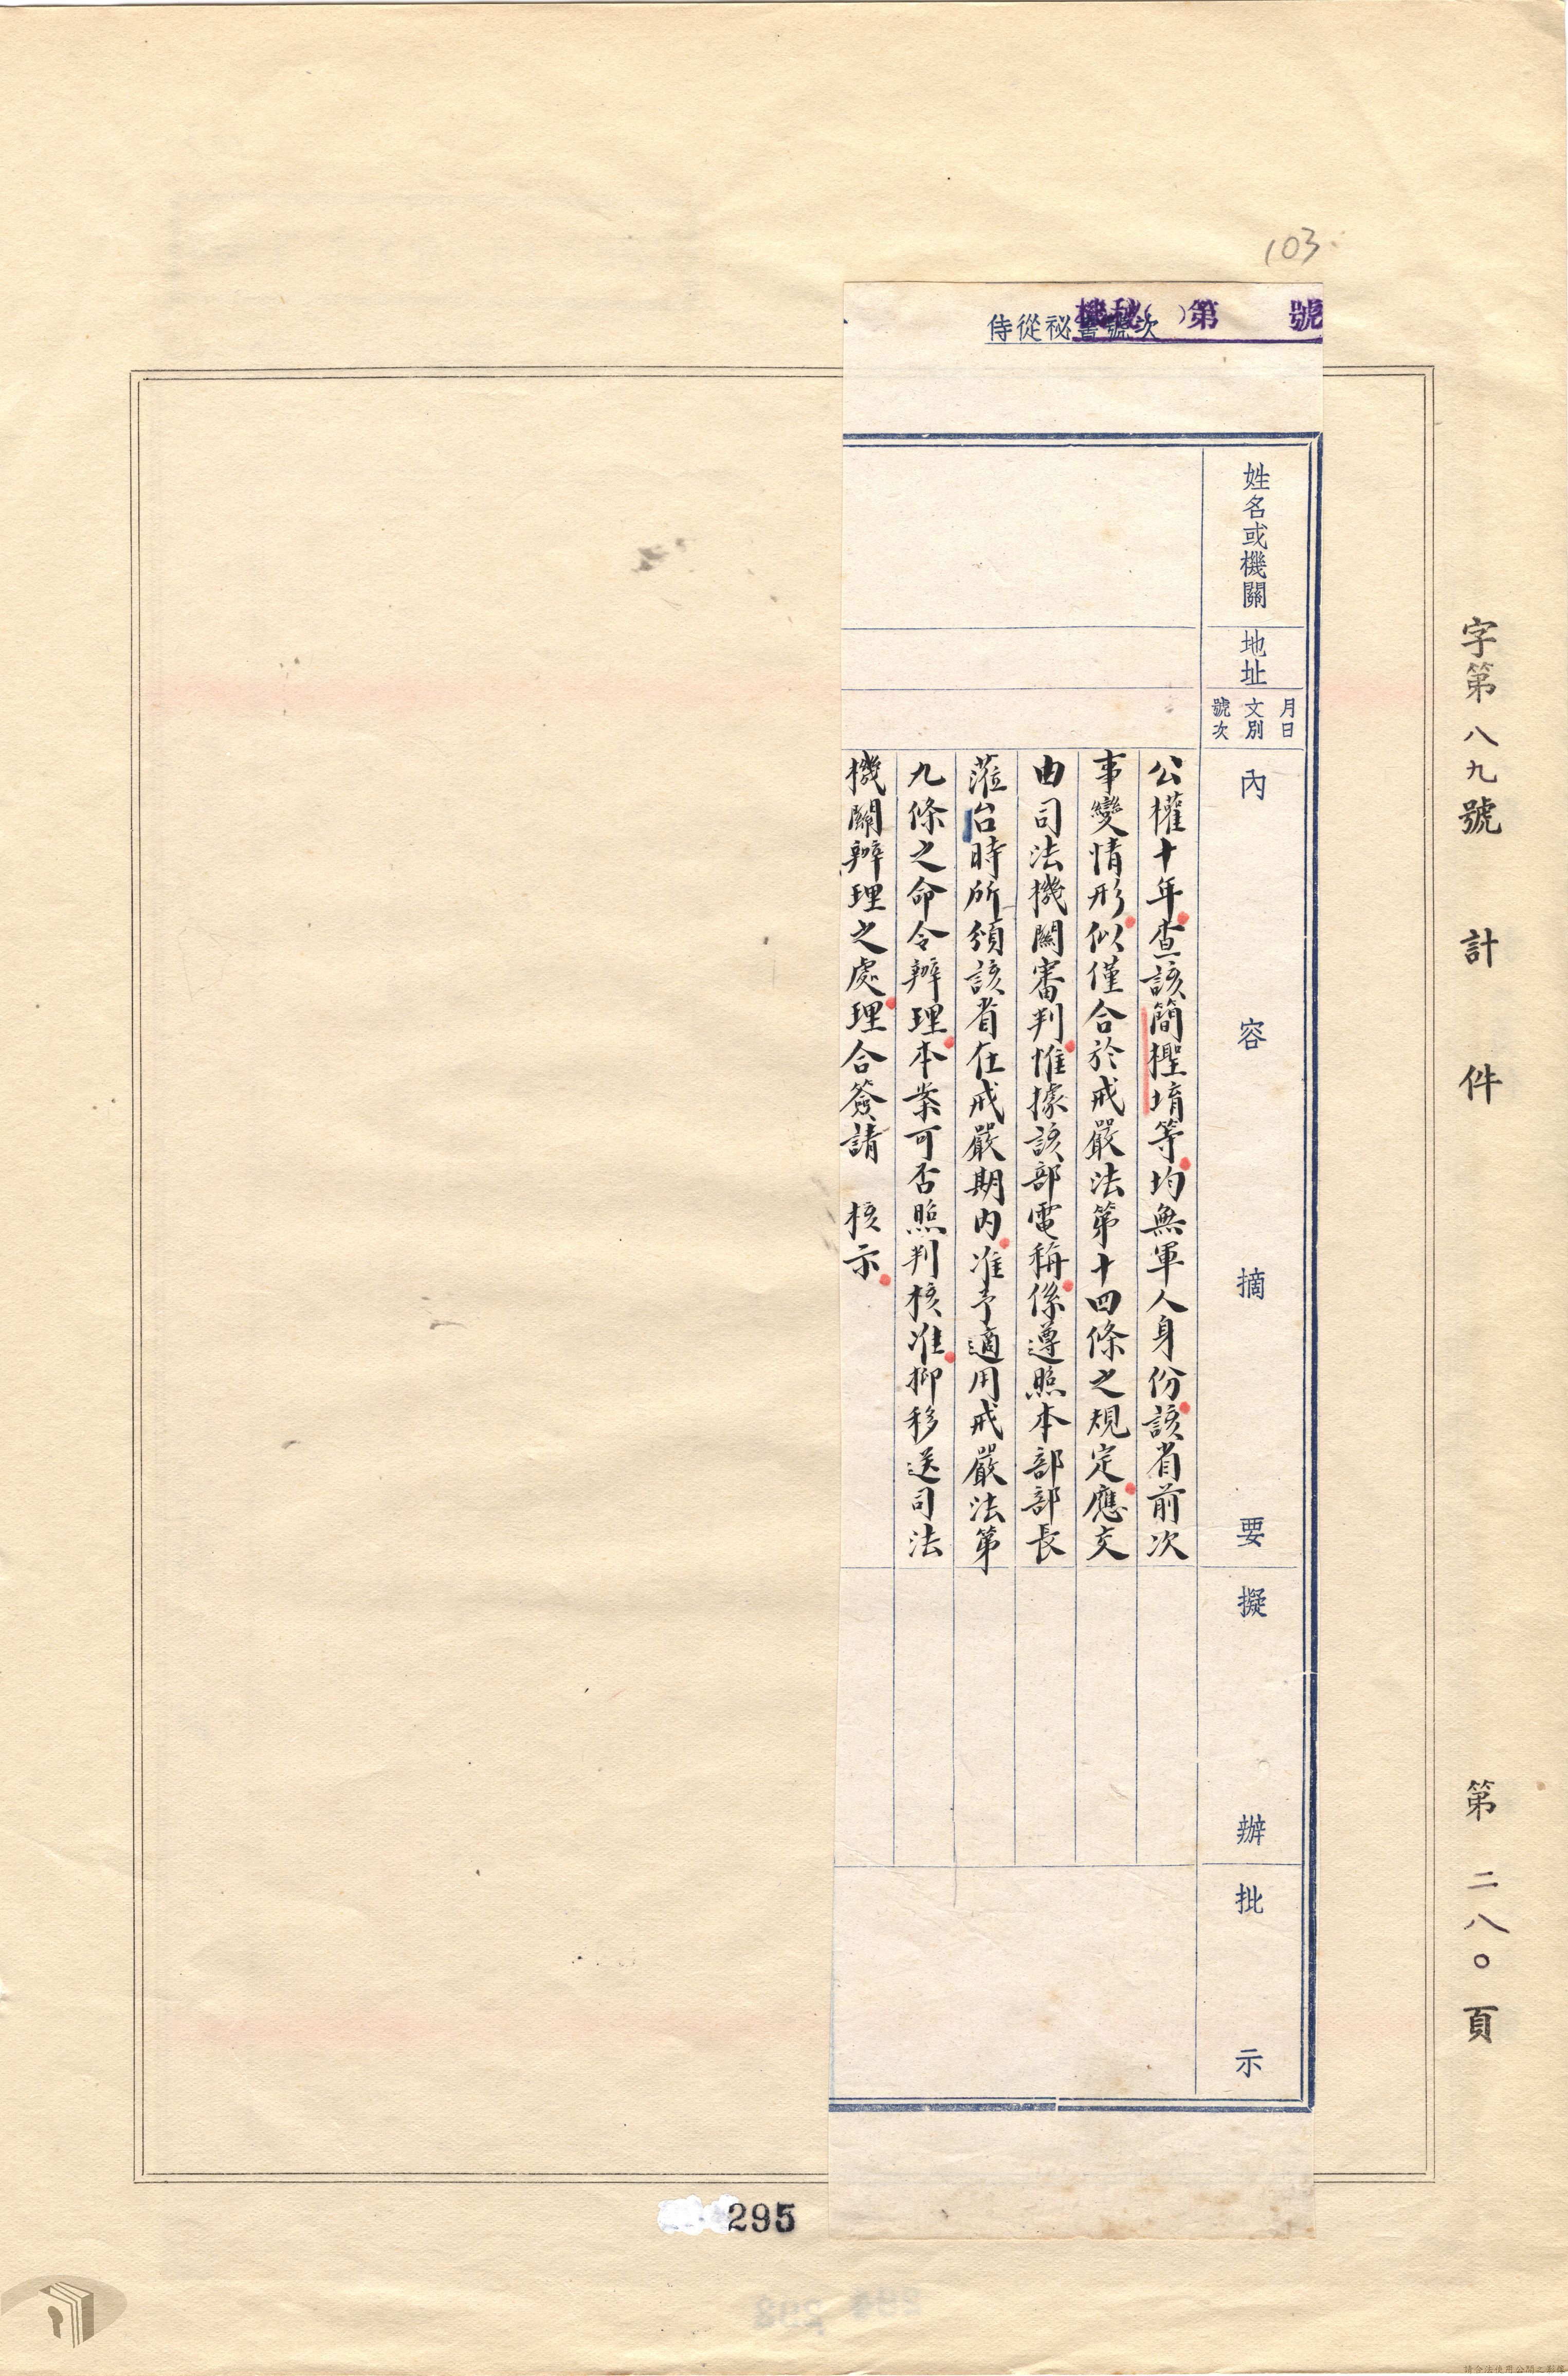 103
機秘（ ）第 號
侍從秘書號次
姓名或機關
地址
月日
文別
號次
內容摘要
擬辦
批示
公權十年查該簡檉堉等均無軍人身份該省前次
事變情形似僅合於戒嚴法第十四條之規定應交
由司法機關審判惟據該部電稱係遵照本部部長
蒞台時所頒該省在戒嚴期內准予適用戒嚴法第
九條之命令辦理本案可否照判核准抑移送司法
機關辦理之處理合簽請 核示
字第八九號 計 件
第二八〇頁
295